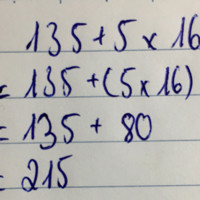 135+5×16
= 135+(5×16)
= 135 + 80
= 215